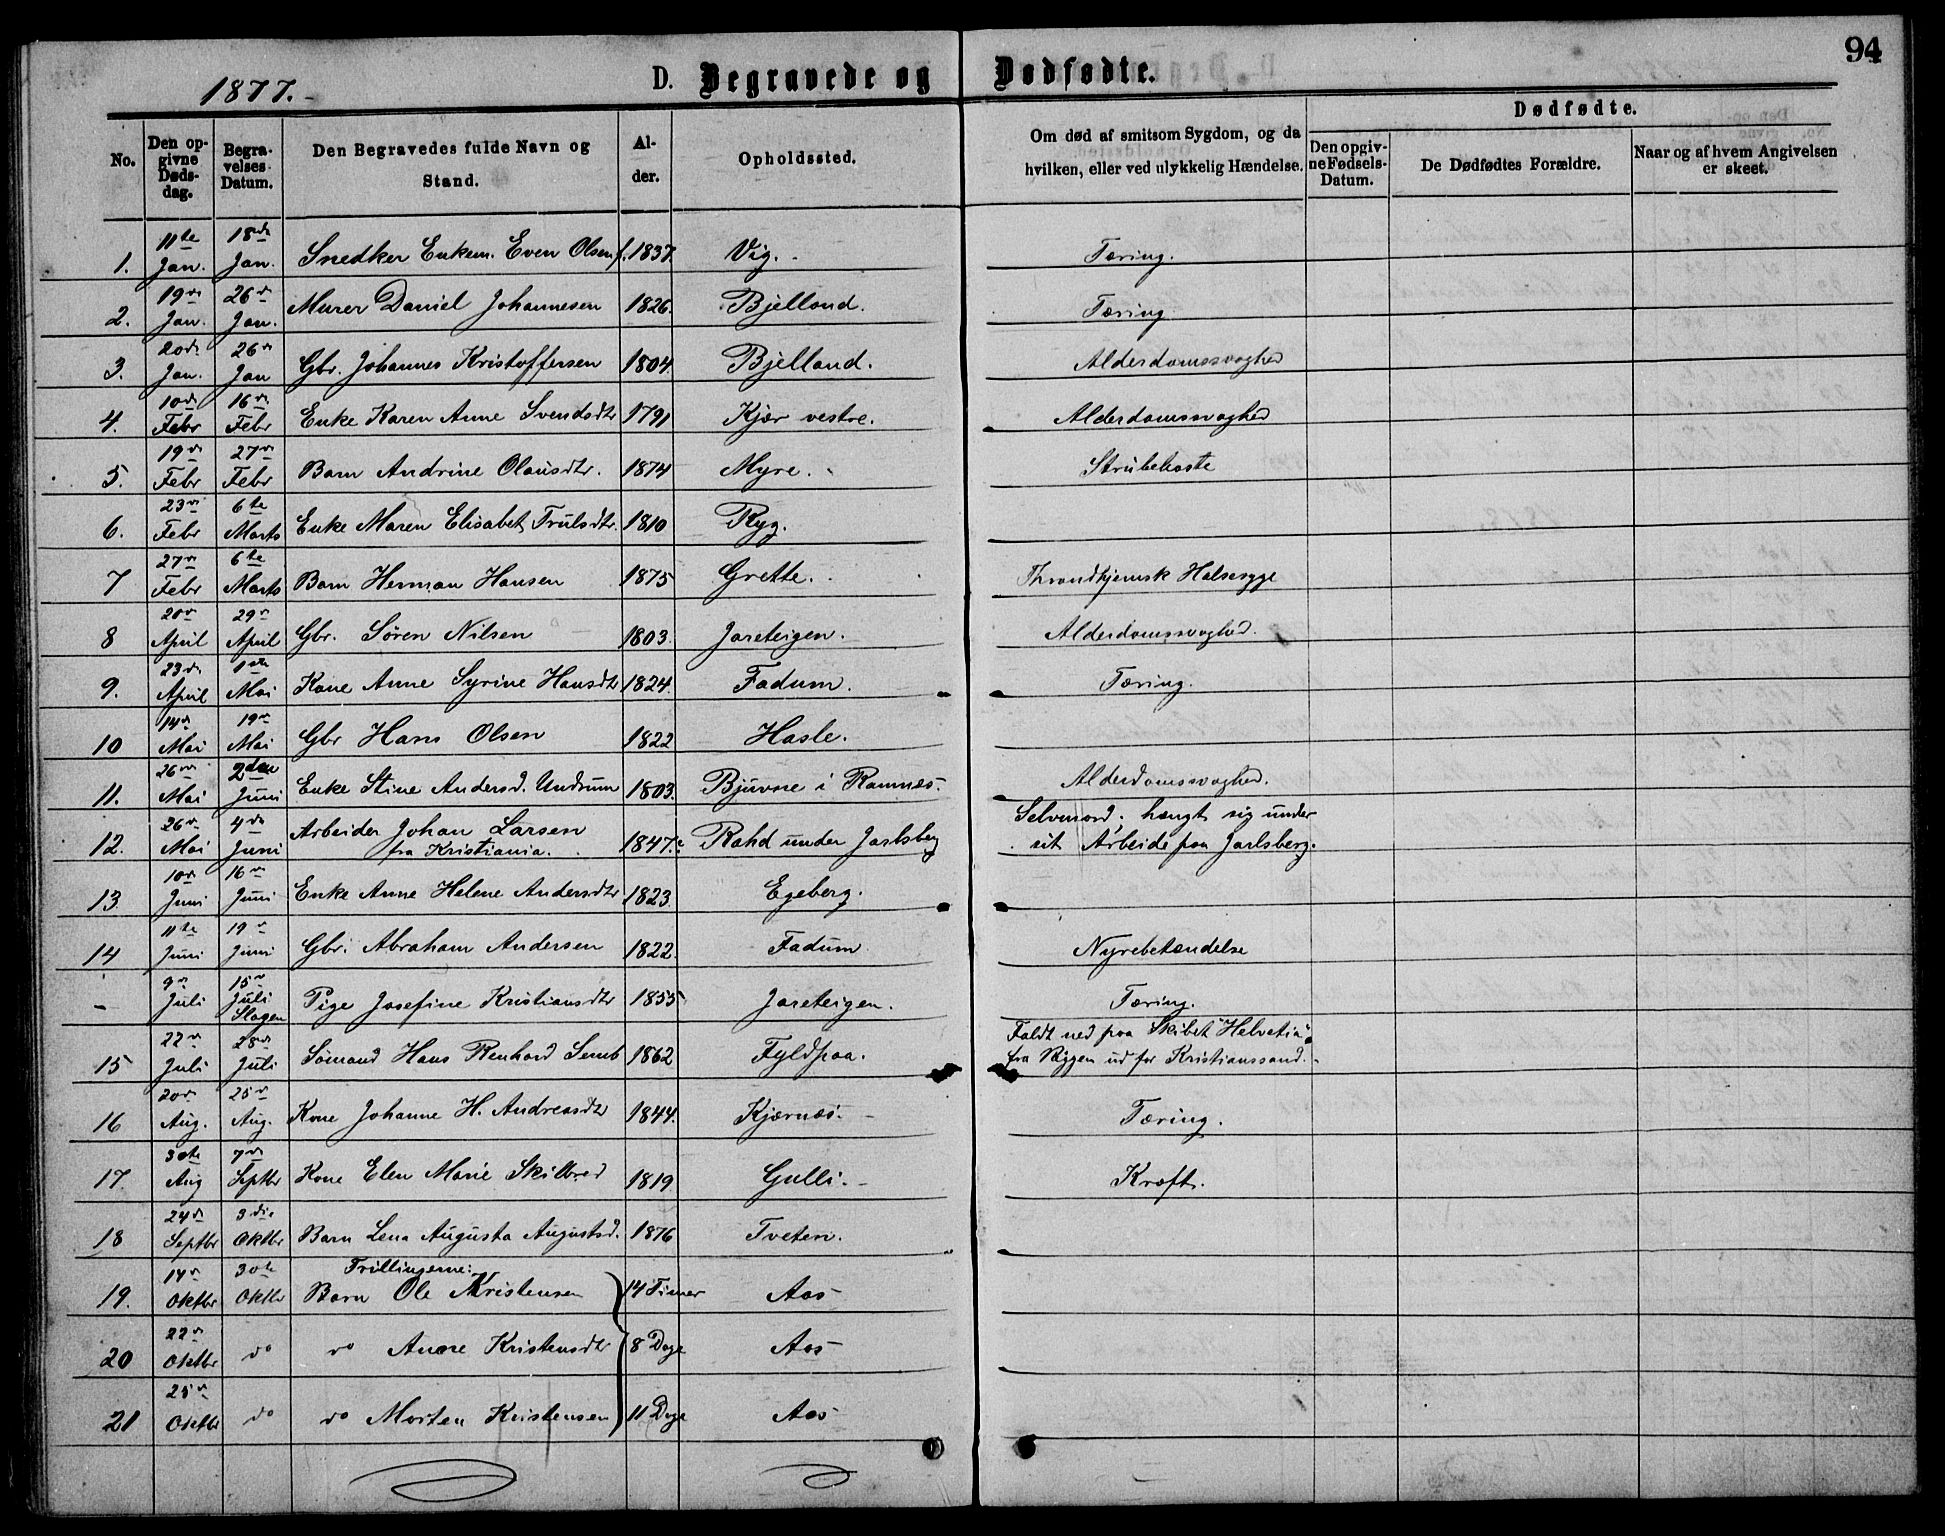 94
1877.-
D. Begravede og Dødfødte.
No. Den opgivne Dødsdag. Begravelses Datum. Den Begravedes fulde Navn og Stand. Alder. Opholdssted. Om død af smitsom Sygdom, og da hvilken, eller ved ulykkelig Hændelse. Dødfødte. Den opgivne Fødsels-Datum. De Dødfødtes Forældre. Naar og af hvem Angivelsen er skeet.
1. 11te Jan. 18de Jan. Snedker Enkem. Even Olsen f. 1837. Vig. Tæring.
2. 19de Jan. 26de Jan. Murer Daniel Johannesen 1826. Bjelland. Tæring
3. 20de Jan. 26de Jan Gbr. Johannes Kristoffersen 1804. Bjelland. Alderdomssvaghed
4. 10de Febr 16de Febr Enke Karen Anne Svendsdtr 1791 Kjær vestre. Alderdomssvaghed
5. 19de Febr 27de Febr Barn Andrine Olausdtr. 1874 Myre. Strubehoste
6. 23de Febr 6te Marts Enke Maren Elisabet Trulsdtr. 1810 Ryg.
7 27de Febr 6te Marts Barn Herman Hansen 1875 Grette. Throndhjemsk Halssyge
8 20de April 29de April Gbr. Sören Nilsen 1803. Jareteigen. Alderdomssvaghed.
9. 23de April 1ste Mai Kone Anne Syrine Hansdtr 1824. Fadum. Tæring.
10 14de Mai 19de Mai Gbr Hans Olsen 1822 Hasle.
11. 26de Mai 2den Juni Enke Stine Andersd. Undrum 1803. Bjuvne i Ramnæs. Alderdomssvaghed.
12. 26de Mai 4de Juni Arbeider Johan Larsen fra Kristiania. 1847. Rahd under Jarlsberg Selvmord; hængt sig under sit Arbeide paa Jarlsberg.
13. 10de Juni 16de Juni Enke Anne Helene Andersdtr 1823. Egeberg.
14 11te Juni 19de Juni Gbr. Abraham Andersen 1822. Fadum. Nyrebetændelse
- 9de Juli 15de Juli Slagen Pige Josefine Kristiansdtr 1855 Jareteigen. Tæring.
15 22de Juli 28de Juli Sømand Hans Renhard Semb 1862 Fyldpaa. Faldt ned paa Skibet "Helvetia" fra Riggen ud for Kristianssand.
16 20de Aug. 25de Aug. Kone Johanne H. Andreasdtr 1844. Kjærnæs. Tæring.
17. 30te Aug 7de Septbr Kone Elen Marie Skilbred 1819. Gulli. Kræft.
18 24de Septbr 3die Oktbr Barn Lena Augusta Augustsd. 1876 Tveten.
Trillingerne:
19. 14de Oktbr 30te Oktbr Barn Ole Kristensen 14 Timer Aas
20 22de Oktbr do do Anne Kristensdtr 8 Dage Aas
21 25de Oktbr do do Morten Kristensen 11 Dage Aas